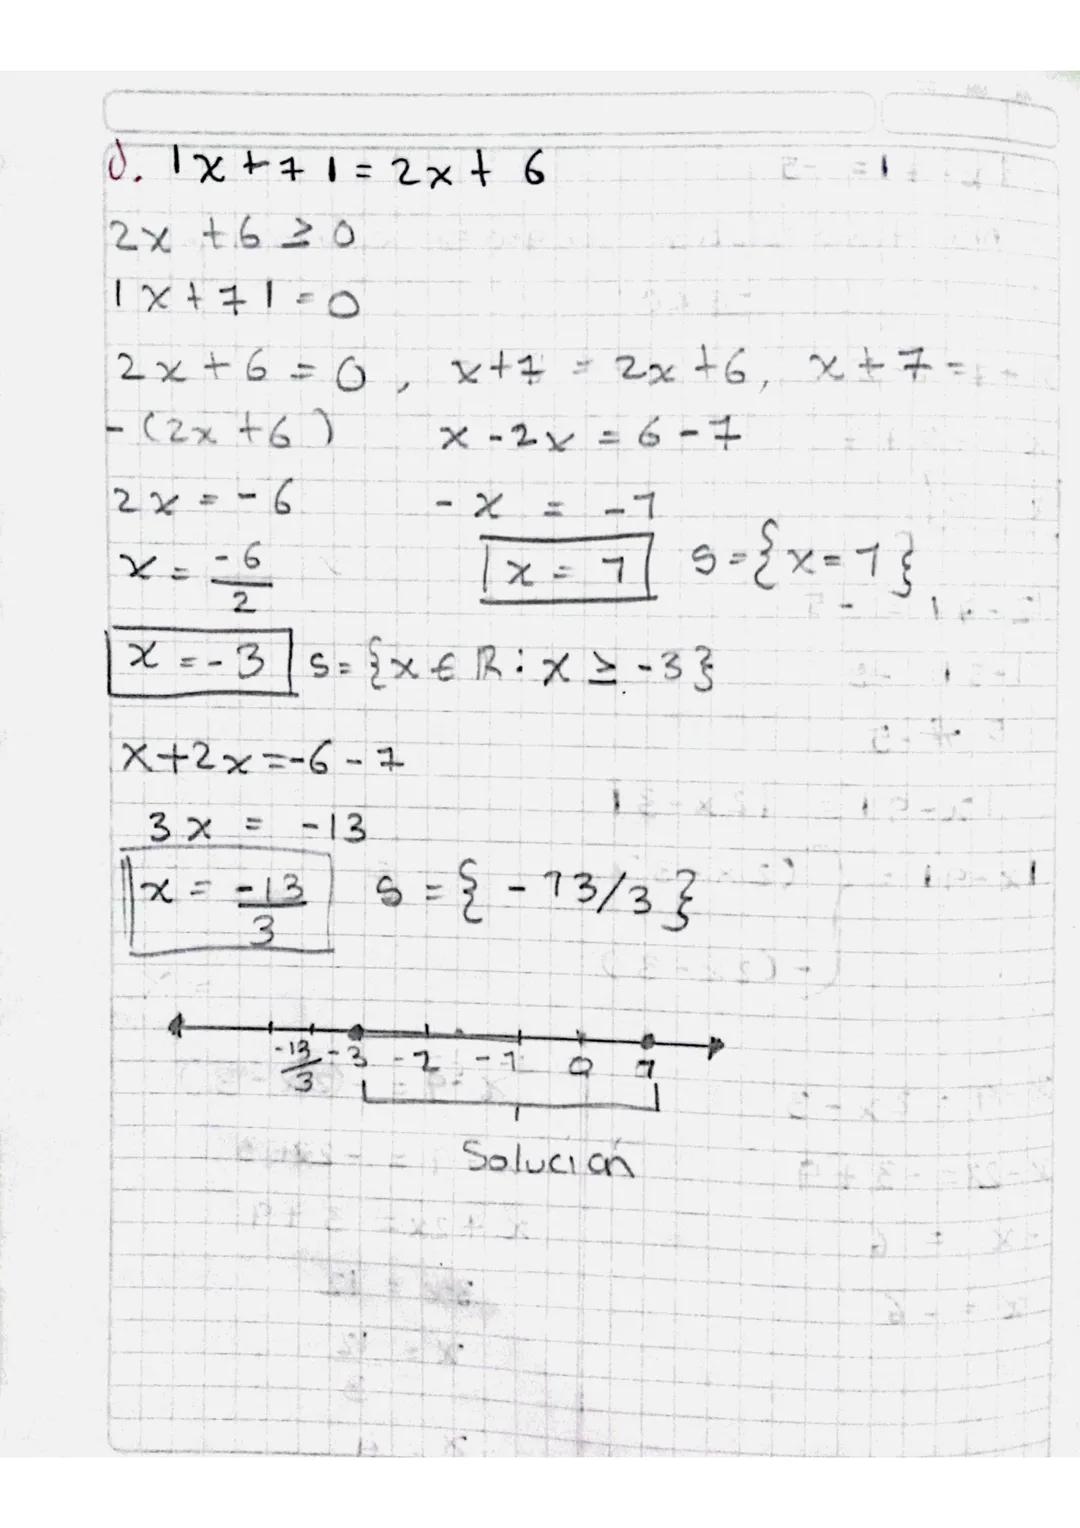 J. |x+7|=2x+6
2x+6≥0
|x+7|=0
2x+6=0, x+7=2x+6, x+7=
-(2x+6) x-2x=6-7
2x=-6 -x = -1
x=-6/2 x=1 S={x=1}
x=-3 S={x∈R:x≥-3}
x+2x=-6-7
3x = -13
x=-13/3 S={-13/3}
-13/3 -3 -2 -1 0 1
Solución